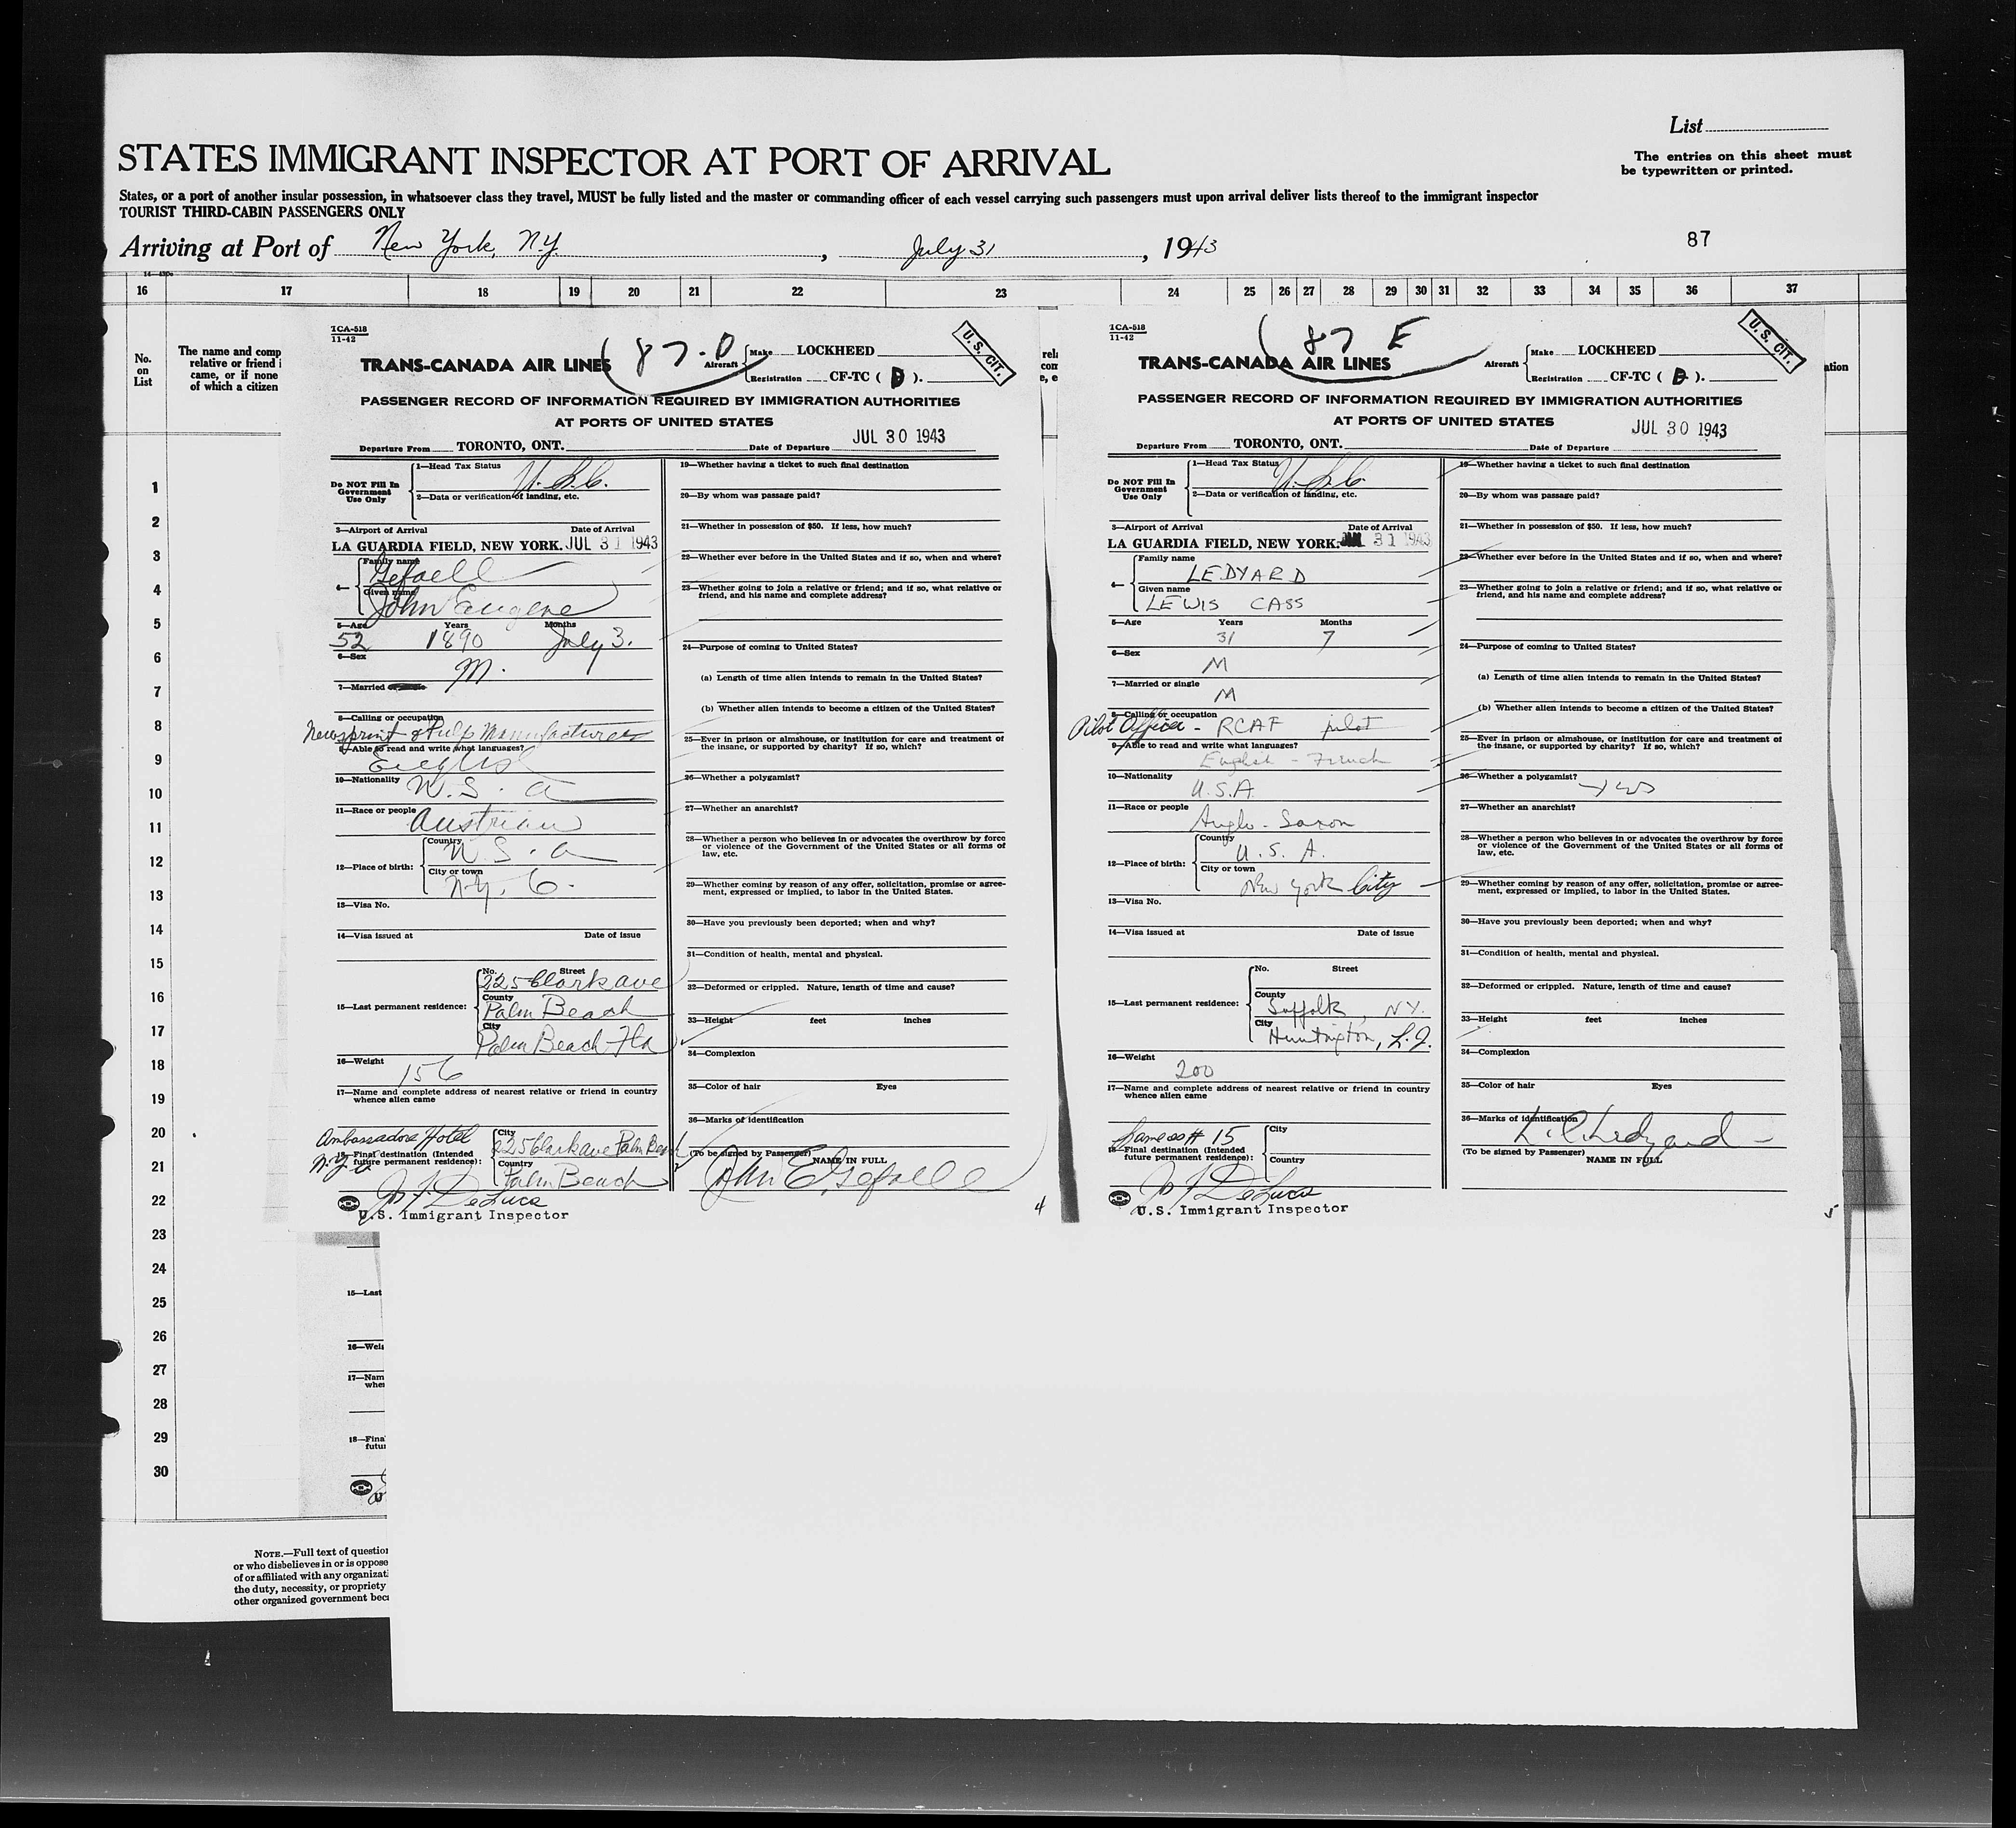 List
STATES IMMIGRANT INSPECTOR AT PORT OF ARRIVAL
The entries on this sheet must
be typewritten or printed.
States, or a port of another insular possession, in whatsoever class they travel, MUST be fully listed and the master or commanding officer of each vessel carrying such passengers must upon arrival deliver lists thereof to the immigrant inspector
TOURIST THIRD-CABIN PASSENGERS ONLY
Arriving at Port of New York, N.Y. , July 31 , 1943
87
16 17 18 19 20 21 22 23 24 25 26 27 28 29 30 31 32 33 34 35 36 37
No.
on
List
The name and comp
relative or friend i
came, or if none
of which a citizen
1
2
3
4
5
6
7
8
9
10
11
12
13
14
15
16
17
18
19
20
21
22
23
24
25
26
27
28
29
30
TCA-518
11-42
87-D
U. S. CIT.
TRANS-CANADA AIR LINES
Aircraft Make LOCKHEED
Registration CF-TC ( D ).
PASSENGER RECORD OF INFORMATION REQUIRED BY IMMIGRATION AUTHORITIES
AT PORTS OF UNITED STATES
JUL 30 1943
Departure From TORONTO, ONT. Date of Departure
Do NOT Fill In
Government
Use Only
1—Head Tax Status U.S.C.
2—Data or verification of landing, etc.
3—Airport of Arrival Date of Arrival
LA GUARDIA FIELD, NEW YORK. JUL 31 1943
4— Family name
Gefaell
Given name
John Eugene
5—Age Years Months
52 1890 July 3.
6—Sex
M.
7—Married
8—Calling or occupation
Newsprint & Pulp Manufacturer
9—Able to read and write what languages?
English
10—Nationality
U.S.A
11—Race or people
Austrian
12—Place of birth:
Country
U.S.A
City or town
N.Y.C.
13—Visa No.
14—Visa issued at Date of issue
15—Last permanent residence:
No. Street
225 Clark ave
County
Palm Beach
City
Palm Beach Fla
16—Weight
156
17—Name and complete address of nearest relative or friend in country
whence alien came
Ambassadore Hotel
N.Y.C
18—Final destination (Intended
future permanent residence):
City
225 Clark ave Palm Beach
Country
Palm Beach
Jos J DeLuca
U.S. Immigrant Inspector
19—Whether having a ticket to such final destination
20—By whom was passage paid?
21—Whether in possession of $50. If less, how much?
22—Whether ever before in the United States and if so, when and where?
23—Whether going to join a relative or friend; and if so, what relative or
friend, and his name and complete address?
24—Purpose of coming to United States?
(a) Length of time alien intends to remain in the United States?
(b) Whether alien intends to become a citizen of the United States?
25—Ever in prison or almshouse, or institution for care and treatment of
the insane, or supported by charity? If so, which?
26—Whether a polygamist?
27—Whether an anarchist?
28—Whether a person who believes in or advocates the overthrow by force
or violence of the Government of the United States or all forms of
law, etc.
29—Whether coming by reason of any offer, solicitation, promise or agree-
ment, expressed or implied, to labor in the United States.
30—Have you previously been deported; when and why?
31—Condition of health, mental and physical.
32—Deformed or crippled. Nature, length of time and cause?
33—Height feet inches
34—Complexion
35—Color of hair Eyes
36—Marks of identification
(To be signed by Passenger) NAME IN FULL
John E. Gefaell
4
rela
com
e, e
TCA-518
11-42
87 E
U. S. CIT.
TRANS-CANADA AIR LINES
Aircraft Make LOCKHEED
Registration CF-TC ( D ).
PASSENGER RECORD OF INFORMATION REQUIRED BY IMMIGRATION AUTHORITIES
AT PORTS OF UNITED STATES
JUL 30 1943
Departure From TORONTO, ONT. Date of Departure
Do NOT Fill In
Government
Use Only
1—Head Tax Status U.S.C.
2—Data or verification of landing, etc.
3—Airport of Arrival Date of Arrival
LA GUARDIA FIELD, NEW YORK. JUL 31 1943
4— Family name
LEDYARD
Given name
LEWIS CASS
5—Age Years Months
31 7
6—Sex
M
7—Married or single
M
8—Calling or occupation
Pilot Officer - RCAF pilot
9—Able to read and write what languages?
English - French
10—Nationality
U.S.A.
11—Race or people
Anglo-Saxon
12—Place of birth:
Country
U.S.A.
City or town
New York City
13—Visa No.
14—Visa issued at Date of issue
15—Last permanent residence:
No. Street
County
Suffolk, N.Y.
City
Huntington, L.I.
16—Weight
200
17—Name and complete address of nearest relative or friend in country
whence alien came
Same as # 15
18—Final destination (Intended
future permanent residence):
City
Country
Jos J DeLuca
U.S. Immigrant Inspector
19—Whether having a ticket to such final destination
20—By whom was passage paid?
21—Whether in possession of $50. If less, how much?
22—Whether ever before in the United States and if so, when and where?
23—Whether going to join a relative or friend; and if so, what relative or
friend, and his name and complete address?
24—Purpose of coming to United States?
(a) Length of time alien intends to remain in the United States?
(b) Whether alien intends to become a citizen of the United States?
25—Ever in prison or almshouse, or institution for care and treatment of
the insane, or supported by charity? If so, which?
26—Whether a polygamist?
27—Whether an anarchist?
28—Whether a person who believes in or advocates the overthrow by force
or violence of the Government of the United States or all forms of
law, etc.
29—Whether coming by reason of any offer, solicitation, promise or agree-
ment, expressed or implied, to labor in the United States.
30—Have you previously been deported; when and why?
31—Condition of health, mental and physical.
32—Deformed or crippled. Nature, length of time and cause?
33—Height feet inches
34—Complexion
35—Color of hair Eyes
36—Marks of identification
L.C. Ledyard
(To be signed by Passenger) NAME IN FULL
5
ation
15—Last
16—Wei
17—Nam
whe
18—Fina
futu
U
NOTE.—Full text of question
or who disbelieves in or is oppose
of or affiliated with any organizati
the duty, necessity, or propriety
other organized government beca